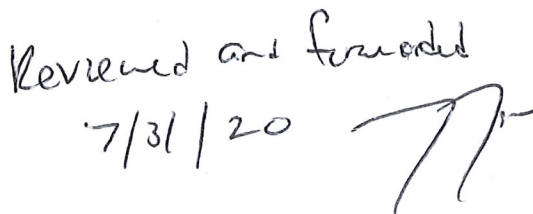 Reviewed and forwarded
7/31/20